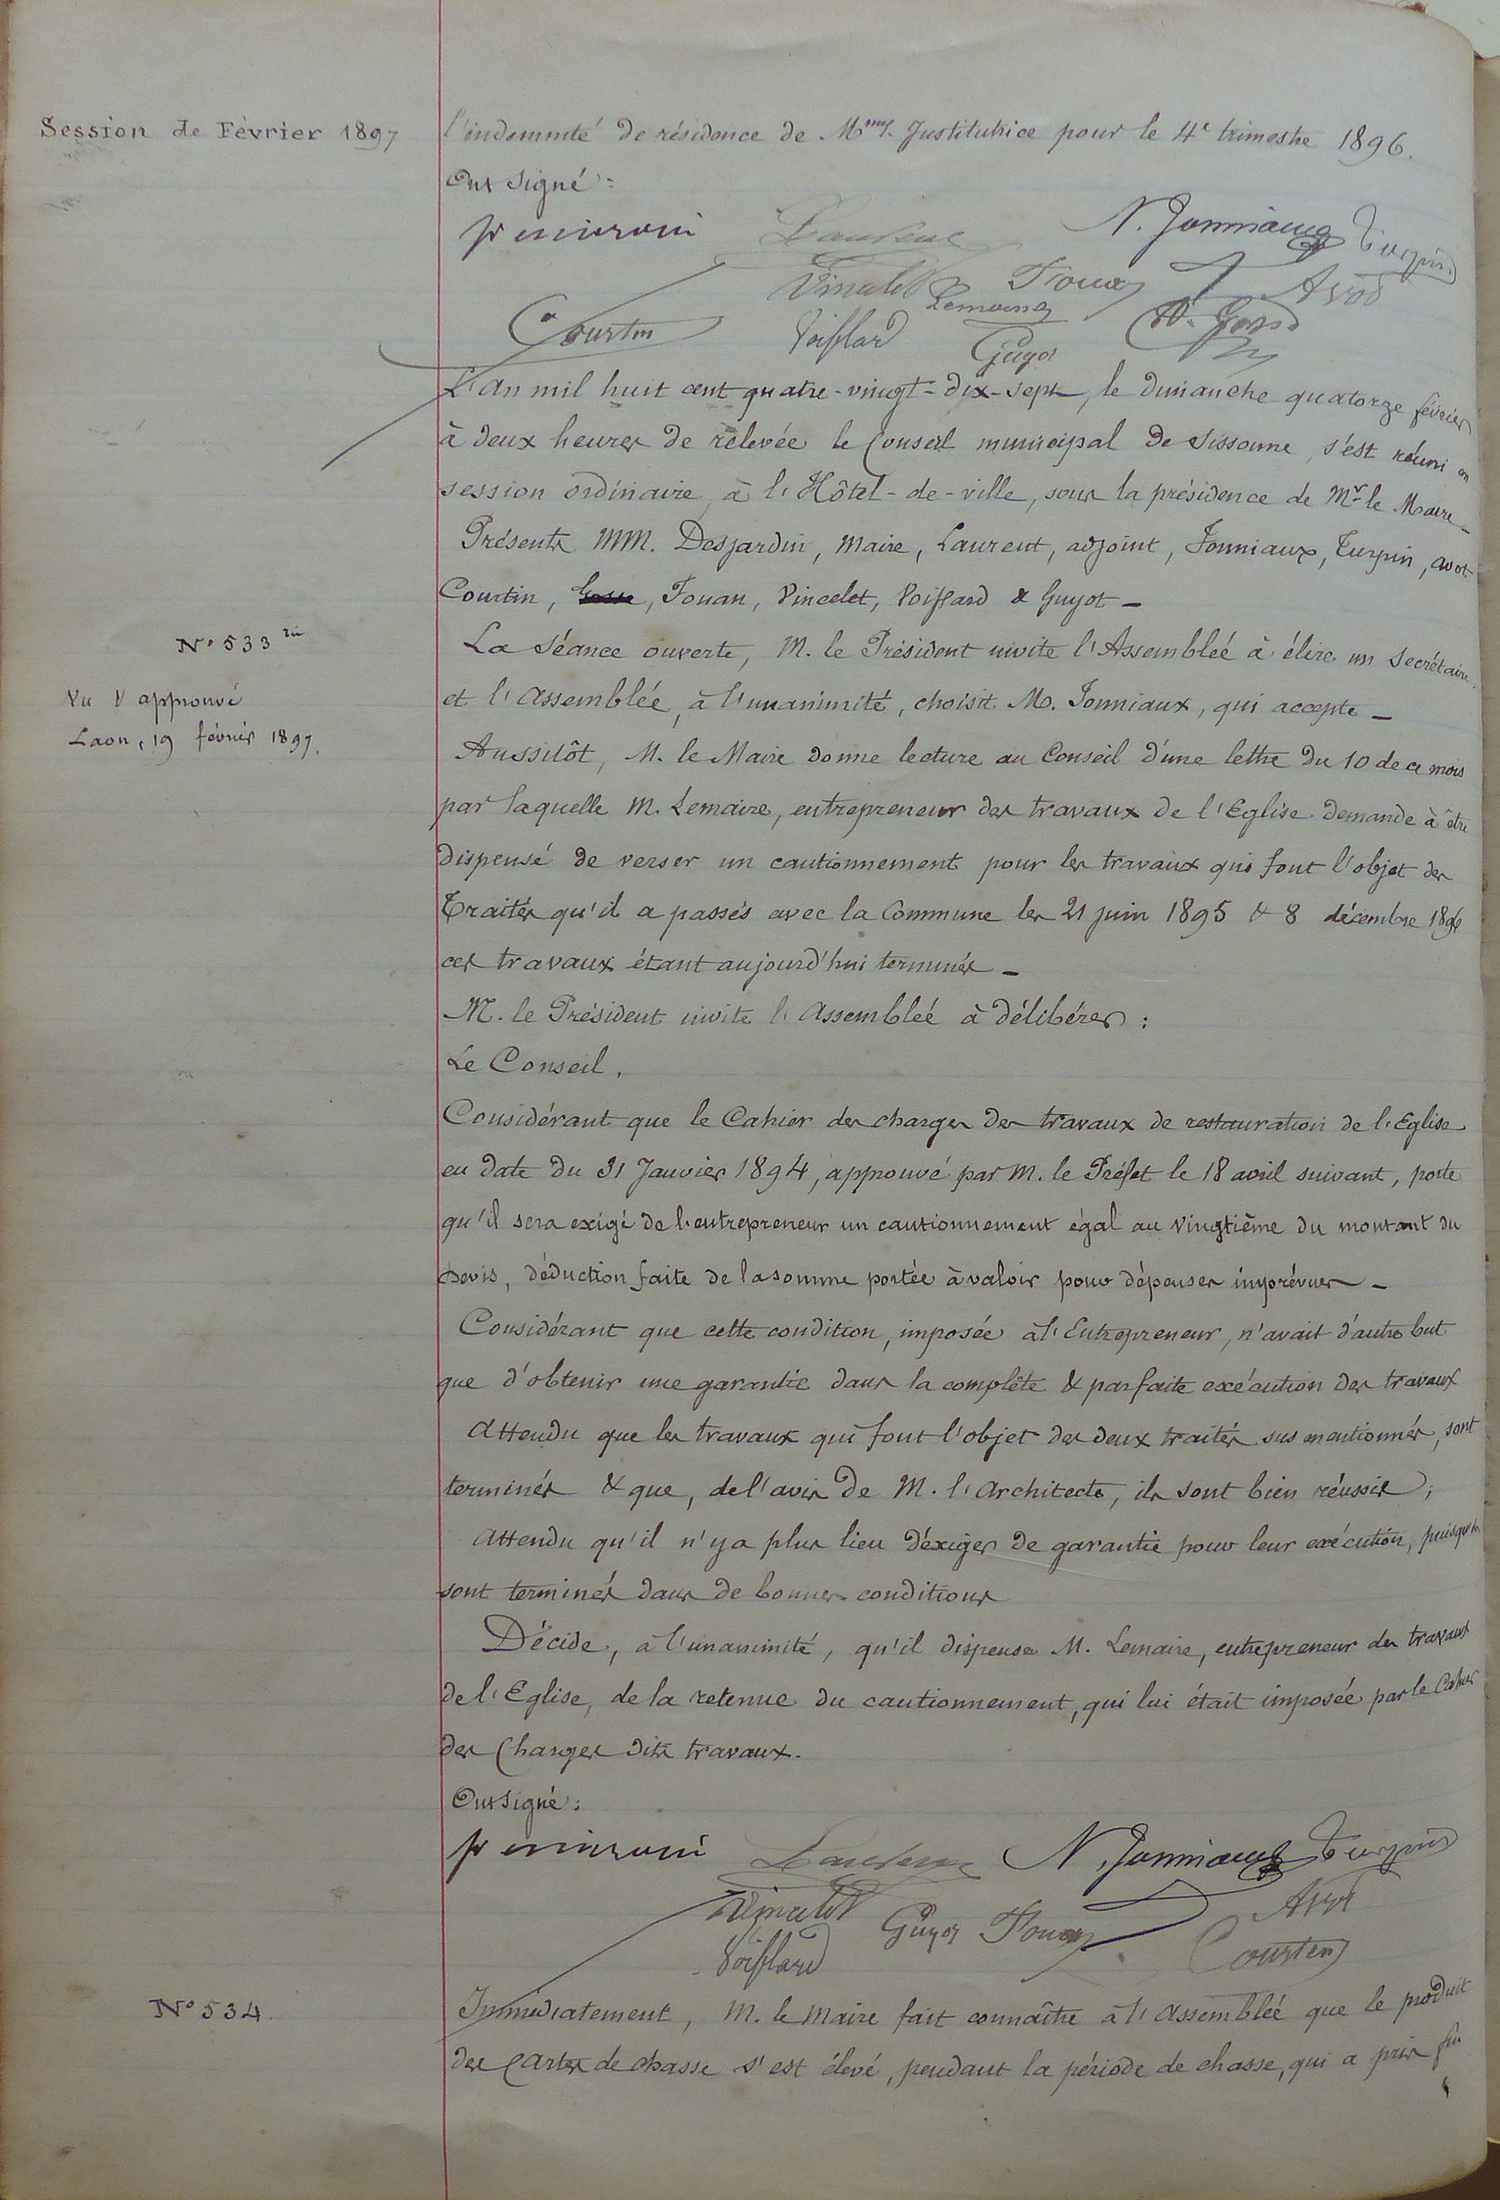 Session de Février 1897
l'indemnité de résidence de Institutrice pour le 4e trimestre 1896.
Ont signé :
Laurent N. Jonniaux Turpin
Vincelet Fouan Avot
Lemoine
Courtin Voiflard Guyot
L'An mil huit cent quatre-vingt-dix-sept, le dimanche quatorze février
à deux heures de relevée le Conseil municipal de Sissonne, s'est réuni en
session ordinaire, à l'Hôtel-de-ville, sous la présidence de Mr le Maire –
Présents MM. Desjardin, Maire, Laurent, adjoint, Jonniaux, Turpin, Avot
Courtin, , Fouan, Vincelet, Voiflard & Guyot –
N° 533
La Séance ouverte, M. le Président invite l'Assembleé à élire un Secrétaire
Vu & approuvé
et l'Assemblée, à l'unanimité, choisit M. Jonniaux, qui accepte –
Laon, 19 février 1897.
Aussitôt, M. le Maire donne lecture au Conseil d'une lettre du 10 de ce mois
par laquelle M. Lemaire, entrepreneur des travaux de l'Eglise demande à être
dispensé de verser un cautionnement pour les travaux qui font l'objet des
Traités qu'il a passés avec la Commune les 21 juin 1895 & 8 décembre 1896
ces travaux étant aujourd'hui terminés –
M. le Président invite l'Assembleé à délibérer :
Le Conseil,
Considérant que le Cahier des charges des travaux de restauration de l'Eglise
en date du 31 Janvier 1894, approuvé par M. le Préfet le 18 avril suivant, porte
qu'il sera exigé de l'entrepreneur un cautionnement égal au Vingtième du montant du
Devis, déduction faite de la somme portée à valoir pour dépenses imprévues –
Considérant que cette condition, imposée à l'Entrepreneur, n'avait d'autre but
que d'obtenir une garantie dans la complète & parfaite exécution des travaux
Attendu que les travaux qui font l'objet des deux traités sus mentionnés, sont
terminés & que, de l'avis de M. l'Architecte, ils sont bien réussis ;
Attendu qu'il n'y a plus lieu d'exiger de garantie pour leur exécution,
sont terminés dans de bonnes conditions
Décide, à l'unanimité, qu'il dispense M. Lemaire, entrepreneur des travaux
de l'Eglise, de la retenue du cautionnement, qui lui était imposée par le Cahier
des Charges dits travaux.
Ont signé :
Laurent N. Jonniaux Turpin
Vincelet Guyot Fouan Avot
Voiflard Courtin
N° 534.
Immédiatement, M. le Maire fait connaître à l'Assembleé que le produit
des Cartes de chasse s'est élevé, pendant la période de chasse, qui a pris fin